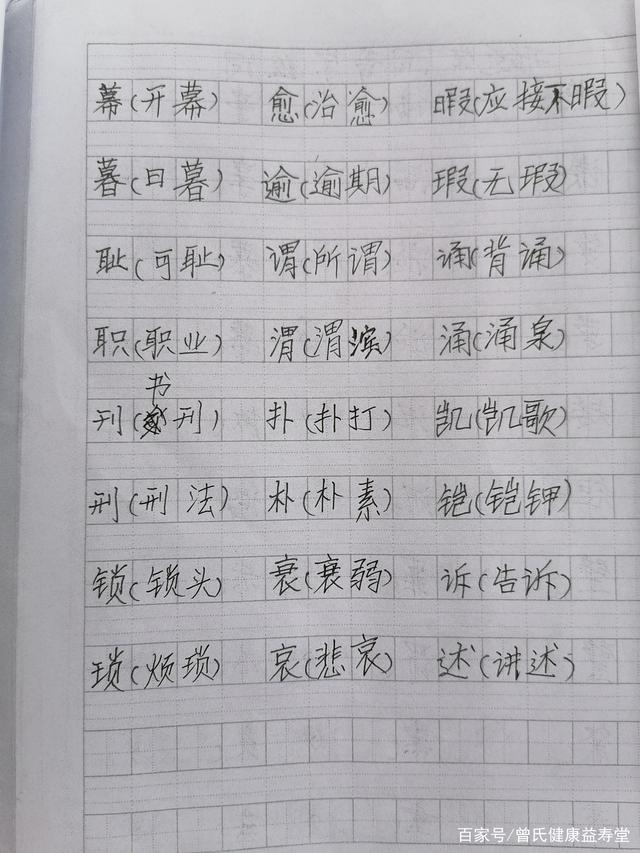 幕(开幕) 愈(治愈) 暇(应接不暇)
暮(日暮) 逾(逾期) 瑕(无瑕)
耻(可耻) 谓(所谓) 诵(背诵)
职(职业) 渭(渭滨) 涌(涌泉)
书
刊(刊) 扑(扑打) 凯(凯歌)
刑(刑法) 朴(朴素) 铠(铠钾)
锁(锁头) 衰(衰弱) 诉(告诉)
琐(烦琐) 哀(悲哀) 述(讲述)
百家号/曾氏健康益寿堂